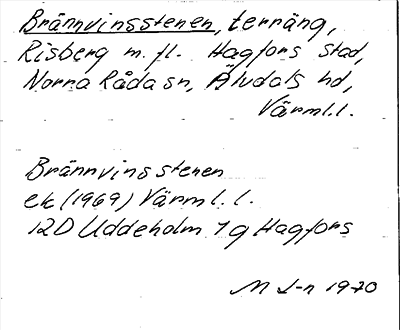 Brännvinsstenen, terräng,
Risberg m. fl. Hagfors stad,
Norra Råda sn, Älvdals hd,
Värml. l.
Brännvinsstenen
ek (1969) Värml. l.
12D Uddeholm 7g Hagfors
M J-n 1970